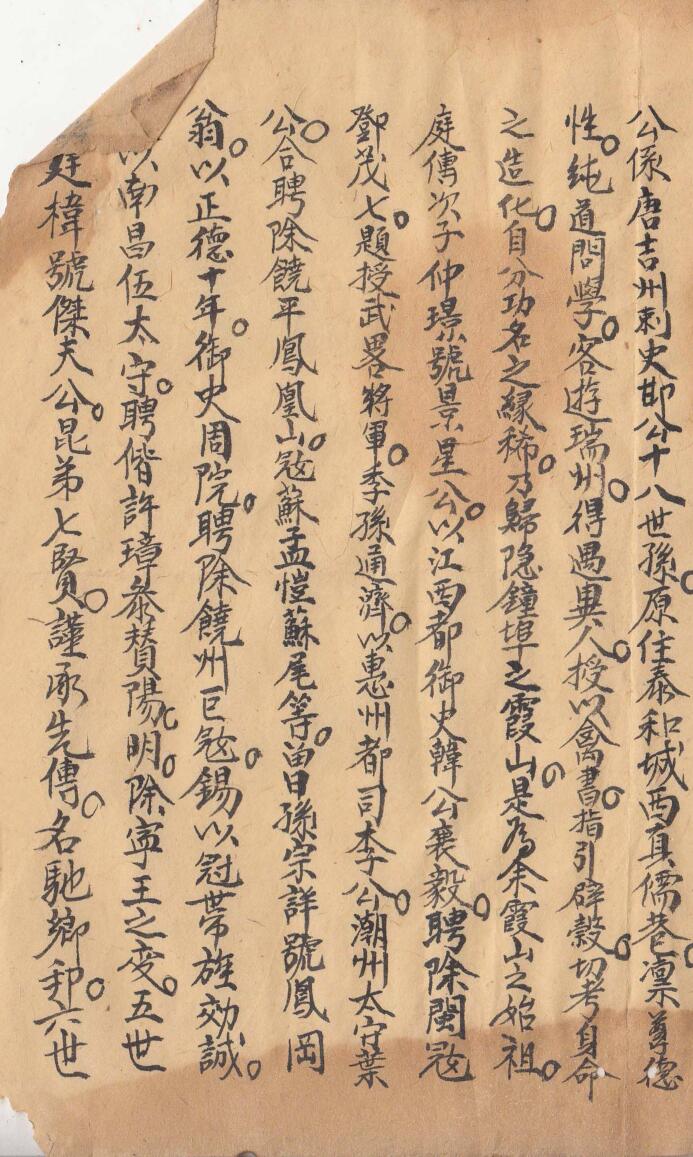 公係唐吉州刺史郡公十八世孫。原住泰和城西真儒巷。凜尊德
性。純道問學。客遊瑞州。得遇異人。授以禽書。指引辟穀。切考身命
之造化。自分功名之緣稀。乃歸隐鐘埠之霞山。是為余霞山之始祖。
庭傳次子仲璟號景星公。以江西都御史韓公襄毅。聘除閩寇
鄧茂七。題授武畧將軍。季孫通濟。以惠州都司李公。潮州太守葉
公。合聘除饒平鳳凰山。寇蘇孟愷蘇尾等。曾孫宗詳號鳳岡
翁。以正德十年。御史周院。聘除饒州巨寇。錫以冠帶旌効誠。
以南昌伍太守。聘偕許璋叅賛陽明。除寧王之变。五世
廷樟號傑夫公。昆弟七賢。謹承先傳。名馳鄉邦。六世